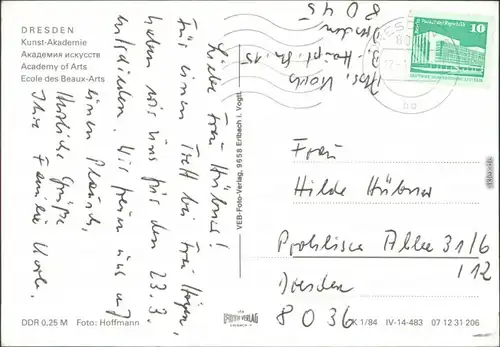 DRESDEN
Kunst-Akademie
Академия искусств
Academy of Arts
Ecole des Beaux-Arts
Liebe Frau Hübner!
Für einen Treff bei Frau
haben wir uns für den 23.3.
entschieden. Wir freuen uns auf
einen Plausch.
Herzliche Grüße
Ihre Familie
DDR 0,25 M Foto: Hoffmann
VEB-Foto-Verlag, 9658 Erlbach i. Vogtl.
Dresden
8045
10
Frau
Hilde Hübner
Prohliser Allee 31/6
/12
Dresden
8036
K 1/84 IV-14-483 07 12 31 206